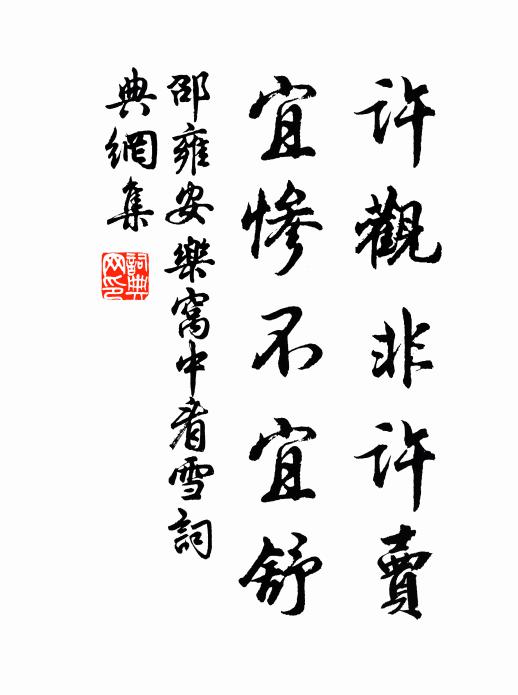 許觀非許賣
宜慘不宜舒
邵雍安樂窩中看雪詞
典網集
詞典網印